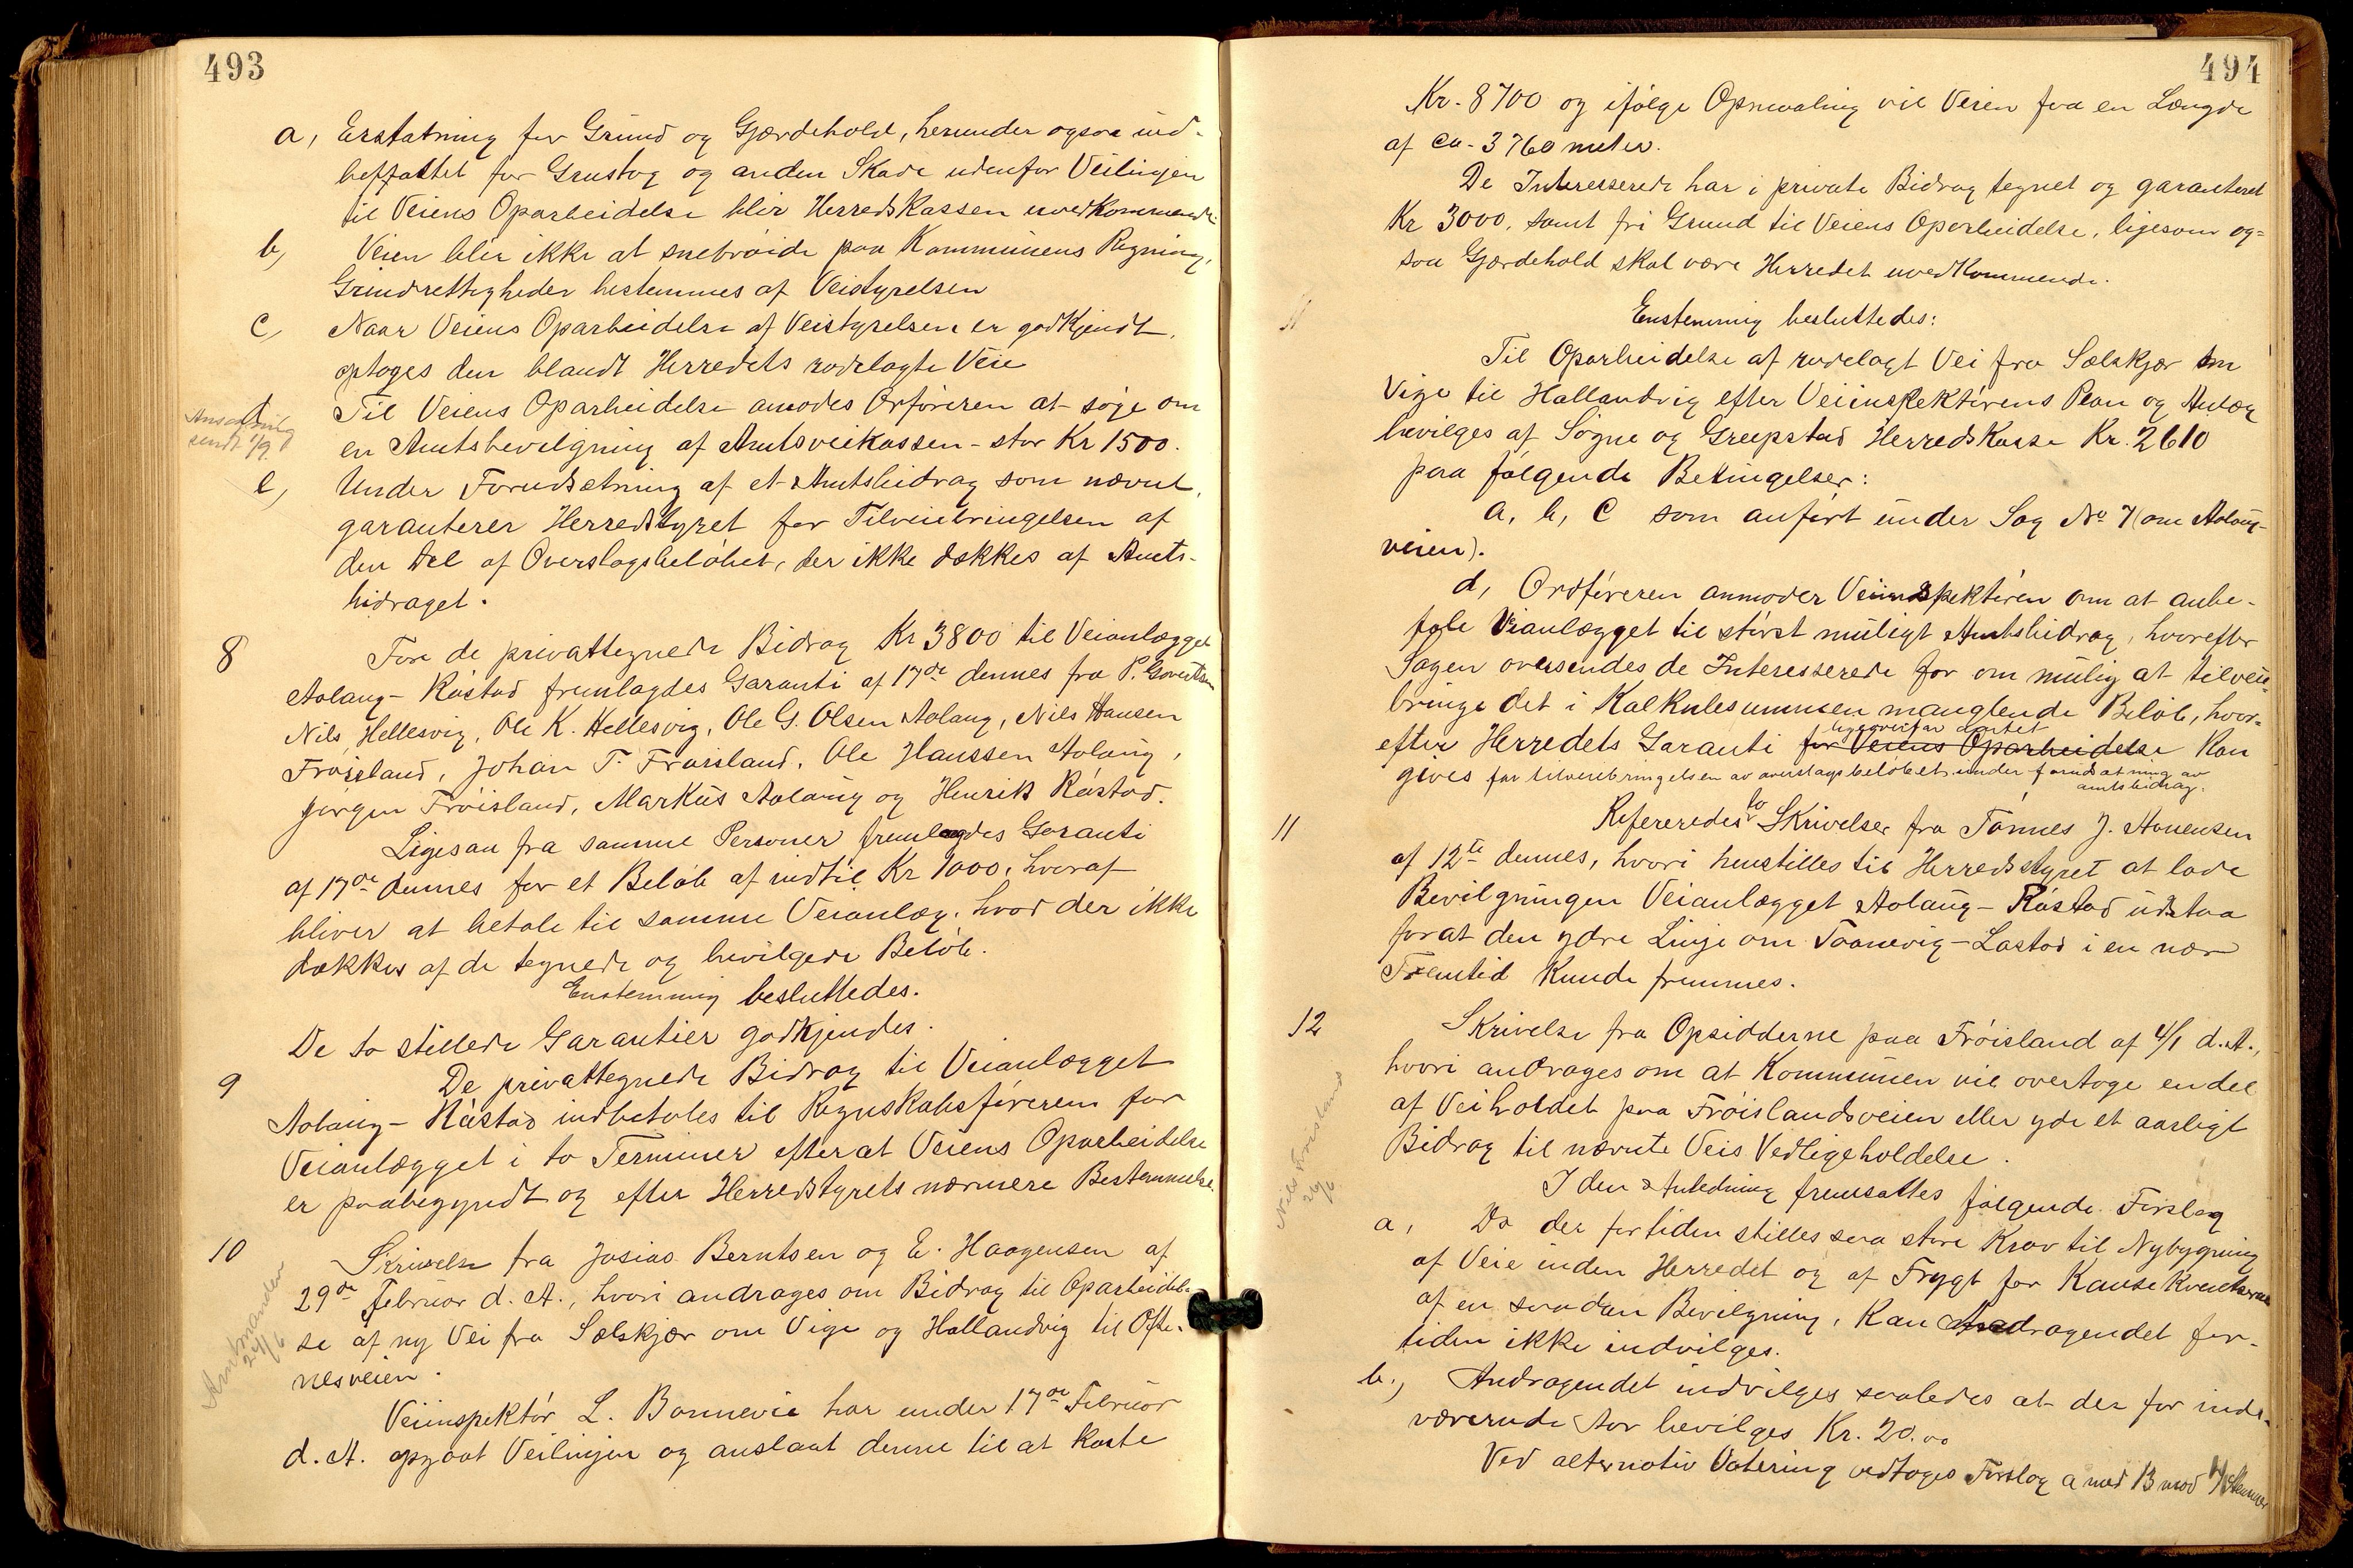 493
a, Erstatning for Grund og Gjærdehold, herunder ogsaa ind-
befattet for Grustag og anden Skade udenfor Veilinjen
til Veiens Oparbeidelse blir Herredskassen uvedkommende.
b, Veien blir ikke at snebrøide paa Kommunens Regning,
Grindrettigheder bestemmes af Veistyrelsen
c, Naar Veiens Oparbeidelse af Veistyrelsen er godkjendt,
optages den blandt Herredets rodelagte Veie
d Til Veiens Oparbeidelse amodes Orføreren at søge om
Ansøgning
sendt 1/9
en Amtsbevilgning af Amtsveikassen - stor Kr 1500.
e, Under Forudsætning af et Amtsbidrag som nævnt,
garanterer Herredstyret for Tilveiebringelsen af
den Del af Overslagsbeløbet, der ikke dækkes af Amts-
bidraget.
8 Fore de privattegnede Bidrag Kr 3800 til Veianlægget
Aolang - Råstad fremlagdes Garanti af 17de dennes fra P. Govertsen
Nils Hellesvig, Ole K. Hellesvig, Ole G. Olsen Aolang, Nils Hansen
Frøisland, Johan T. Frøisland, Ole Hanssen Aolang,
Jørgen Frøisland, Markus Aolang og Henrik Råstad.
Ligesaa fra samme Personer fremlagdes Garanti
af 17de dennes for et Beløb af indtil Kr 1000, hvoraf
bliver at betale til samme Veianlæg, hvad der ikke
dækkes af de tegnede og bevilgede Beløb.
Enstemmig besluttedes.
De to stillede Garantier godkjendes.
9 De privattegnede Bidrag til Veianlægget
Aolang - Råstad indbetales til Regnskabsføreren for
Veianlægget i to Terminer efterat Veiens Oparbeidelse
er paabegyndt og efter Herredstyrets nærmere Bestemmelse.
10 Skrivelse fra Josias Berntsen og E. Haagensen af
29de Februar d. A., hvori andrages om Bidrag til Oparbeidel-
se af ny Vei fra Sælskjær om Vige og Hallandvig til Ofte-
nesveien.
Amtmanden
24/6
Veiinspektør L. Bonnevie har under 17de Februar
d. A. opgaat Veilinjen og anslaat denne til at koste
494
Kr. 8700 og ifølge Opmaaling vil Veien faa en Længde
af ca. 3760 meter.
De Interesserede har i private Bidrag tegnet og garanteret
Kr 3000, samt fri Grund til Veiens Oparbeidelse, ligesom og-
saa Gjærdehold skal være Herredet uvedkommende.
Enstemmig besluttedes:
Til Oparbeidelse af rodelagt Vei fra Sælskjær om
Vige til Hallandvig efter Veiinspektørens Plan og Anlæg
bevilges af Søgne og Greepstad Herredskasse Kr. 2610
paa følgende Betingelser:
a, b, c som anført under Sag No 7 (om Aolang-
veien).
d, Ordføreren anmoder Veiinspektøren om at anbe-
fale Veianlægget til størst muligt Amtsbidrag, hvorefter
Sagen oversendes de Interesserede for om mulig at tilveie-
bringe det i Kalkulesummen manglende Beløb, hvor-
efter Herredets Garanti for Veiens Oparbeidelse kan
gives for tilveiebringelsen av overslagsbeløbet under forudsætning av
amtsbidrag.
11 Refereredes to Skrivelser fra Tønnes J. Aonensen
af 12te dennes, hvori henstilles til Herredsstyret at lade
Bevilgningen Veianlægget Aolang - Råstad udstaa
forat den ydre Linje om Taanevig - Lastad i en nær
Fremtid kunde fremmes.
12 Skrivelse fra Opsidderne paa Frøisland af 4/1 d. A.,
hvori andrages om at Kommunen vil overtage endel
af Veiholdet paa Frøislandsveien eller yde et aarligt
Bidrag til nævnte Veis Vedligeholdelse.
Nils Frøisland
26/6
I den Anledning fremsattes følgende Forslag
a, Da der fortiden stilles saa store Krav til Nybygning
af Veie inden Herredet og af Frygt for Konsekventserne
af en saadan Bevilgning, kan Andragendet for-
tiden ikke indvilges.
b., Andragendet indvilges saaledes at der for inde-
værende Aar bevilges Kr. 20.00
Ved alternativ Votering vedtoges Forslag a med 13 mod Stemmer